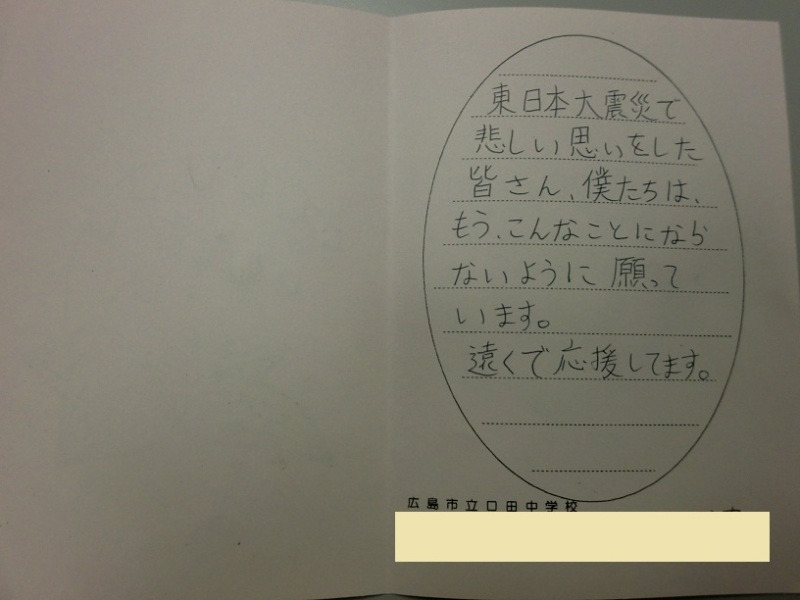 東日本大震災で
悲しい思いをした
皆さん、僕たちは、
もう、こんなことになら
ないように願って
います。
遠くで応援してます。
広島市立口田中学校